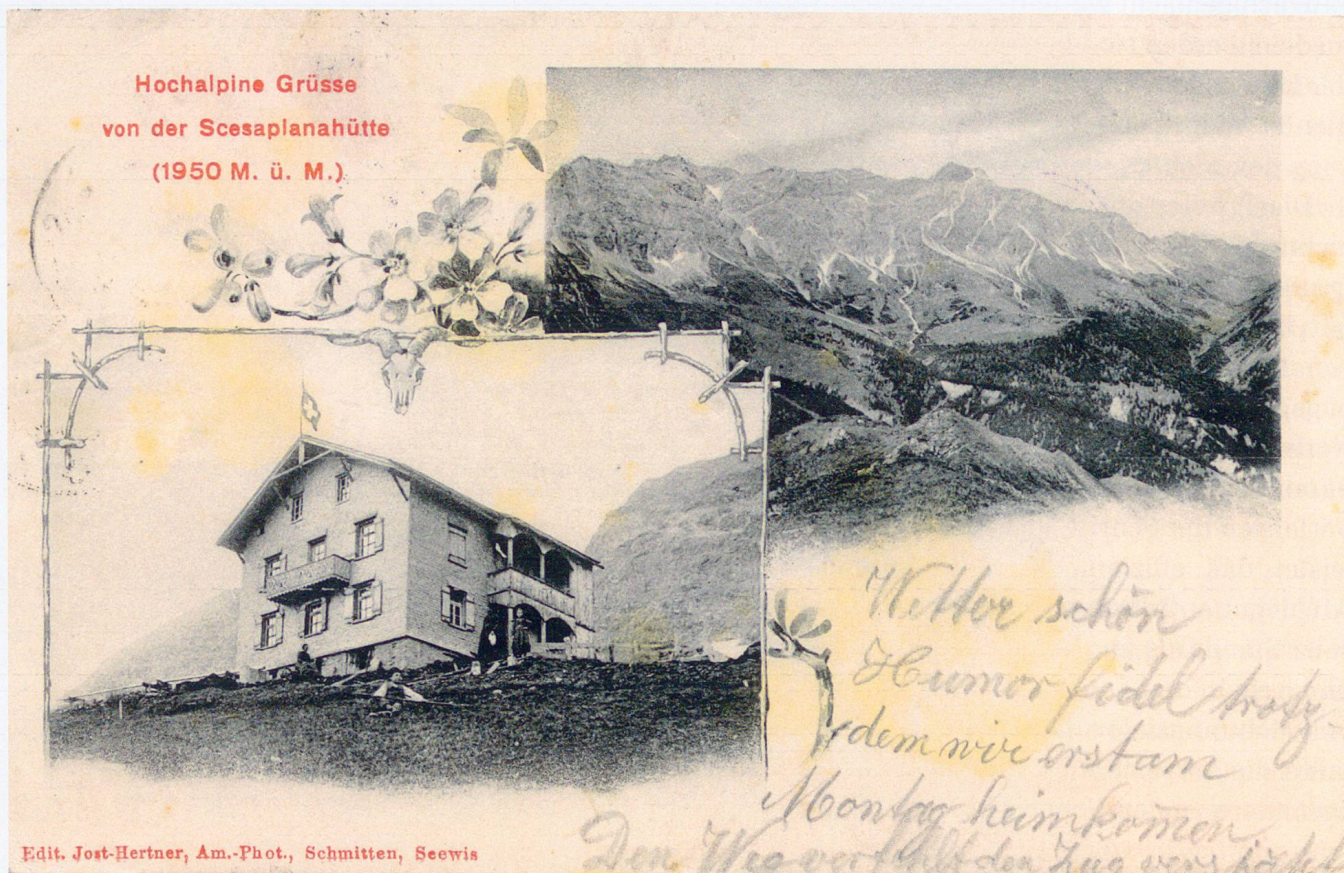 Hochalpine Grüsse
von der Scesaplanahütte
(1950 M. ü. M.)
Wetter schön
Humor fidel trotz-
dem wir erst am
Montag heimkom̅en
Den Weg verfehlt den Zug verspätet
Edit. Jost-Hertner, Am.-Phot., Schmitten, Seewis